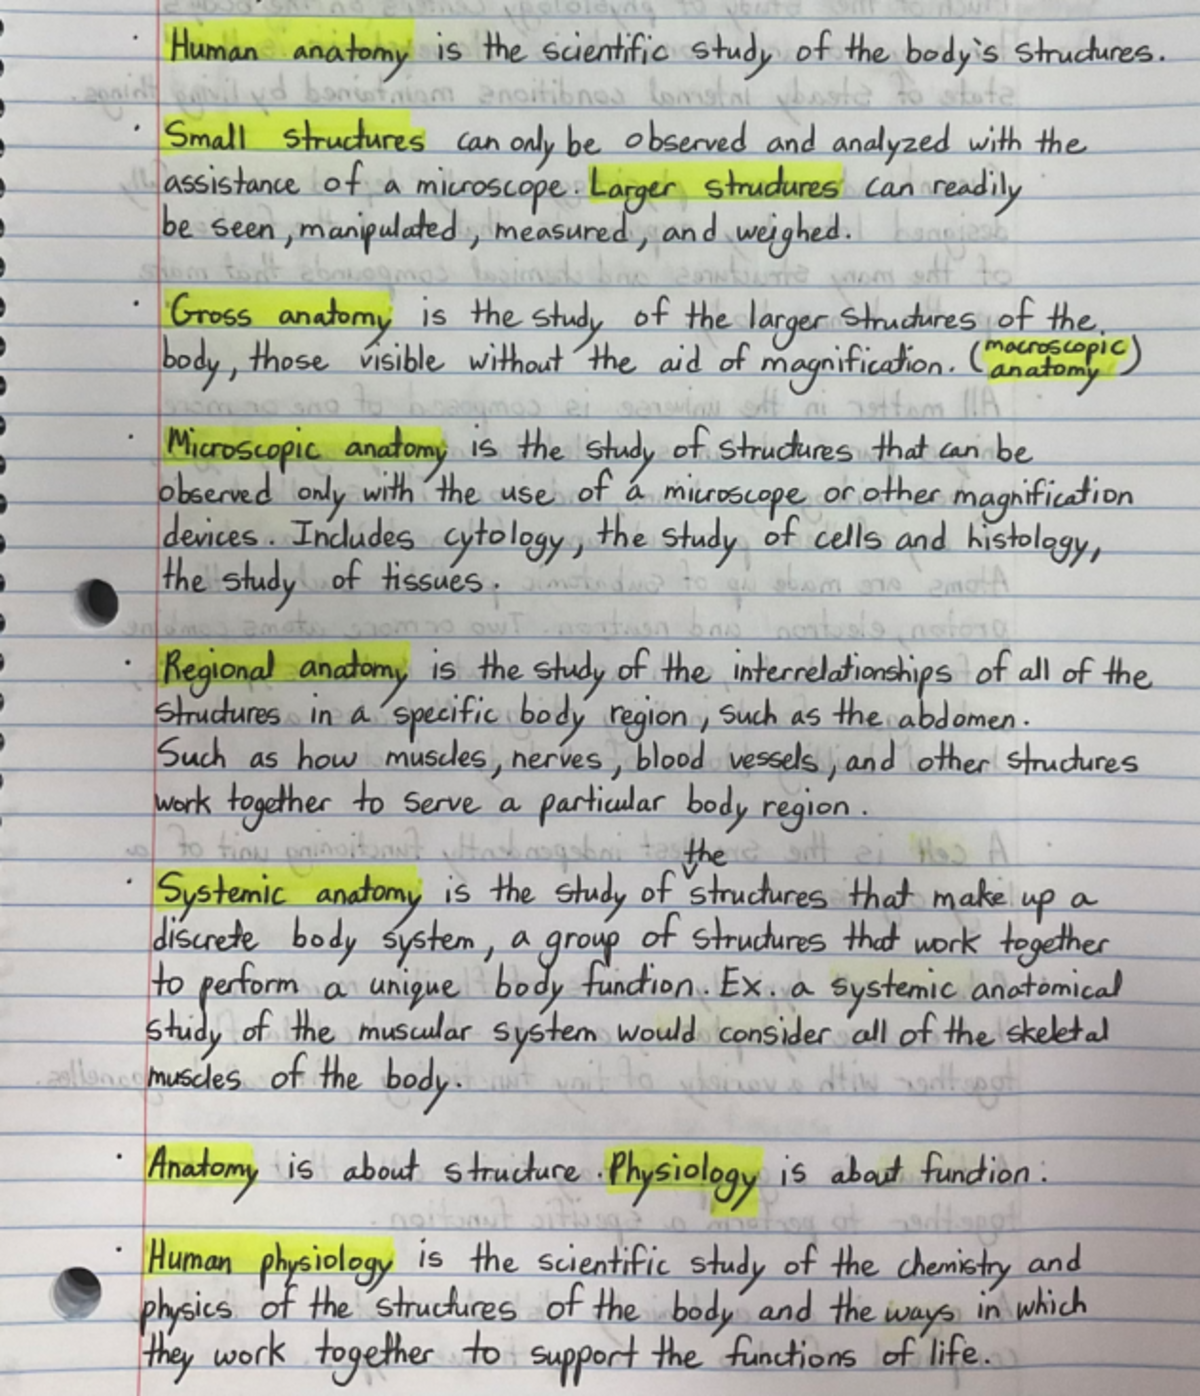 · Human anatomy is the scientific study of the body's structures.
· Small structures can only be observed and analyzed with the
assistance of a microscope. Larger structures can readily
be seen, manipulated, measured, and weighed.
· Gross anatomy is the study of the larger structures of the
body, those visible without the aid of magnification. (macroscopic
anatomy)
· Microscopic anatomy is the study of structures that can be
observed only with the use of a microscope or other magnification
devices. Includes cytology, the study of cells and histology,
the study of tissues.
· Regional anatomy is the study of the interrelationships of all of the
structures in a specific body region, such as the abdomen.
Such as how muscles, nerves, blood vessels, and other structures
work together to serve a particular body region.
· Systemic anatomy is the study of the structures that make up a
discrete body system, a group of structures that work together
to perform a unique body function. Ex. a systemic anatomical
study of the muscular system would consider all of the skeletal
muscles of the body.
· Anatomy is about structure. Physiology is about function.
· Human physiology is the scientific study of the chemistry and
physics of the structures of the body and the ways in which
they work together to support the functions of life.